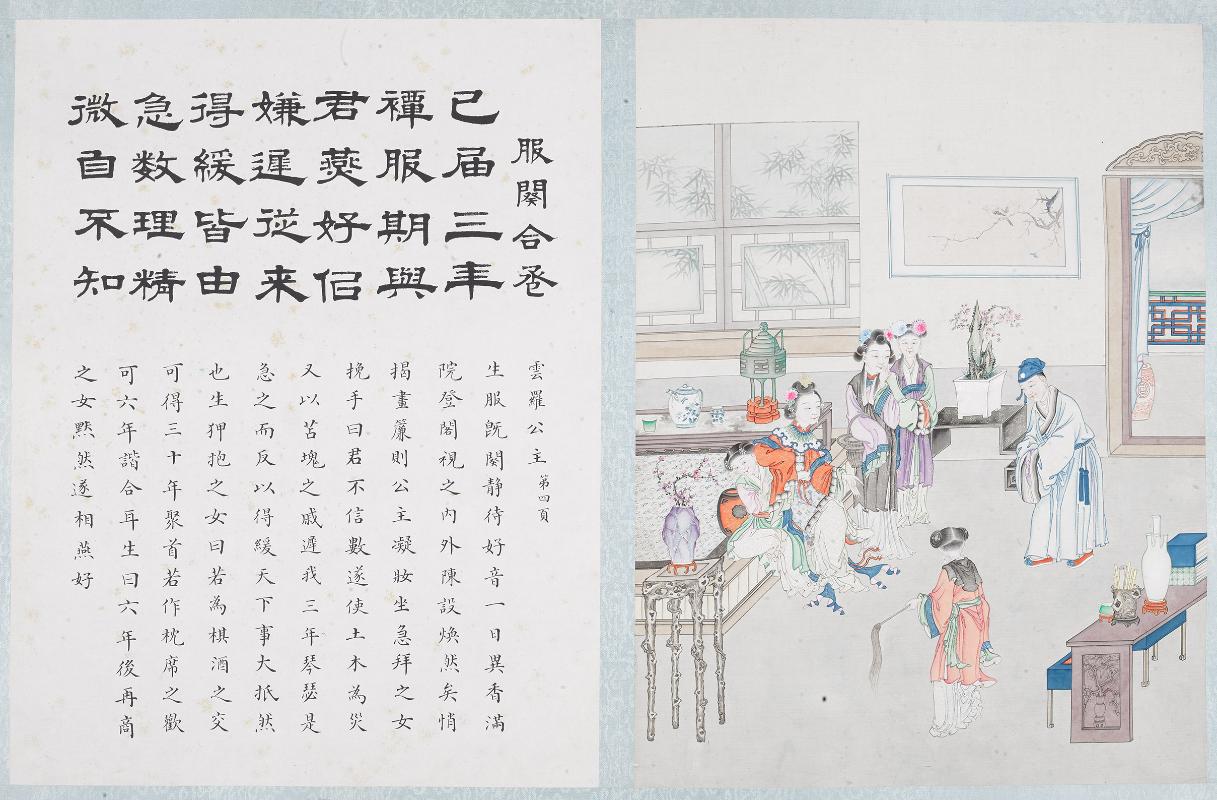 服闋合卺
已届三年
禫服期與
君燕好侣
嫌遲從来
得緩皆由
急数理精
微自不知
雲羅公主 第四頁
生服既闋静待好音一日異香滿
院登閣視之内外陳設煥然矣悄
揭畫簾則公主凝妝坐急拜之女
挽手曰君不信數遂使土木為災
又以苫塊之戚遲我三年琴瑟是
急之而反以得緩天下事大抵然
也生狎抱之女曰若為棋酒之交
可得三十年聚首若作枕席之歡
可六年諧合耳生曰六年後再商
之女黙然遂相燕好